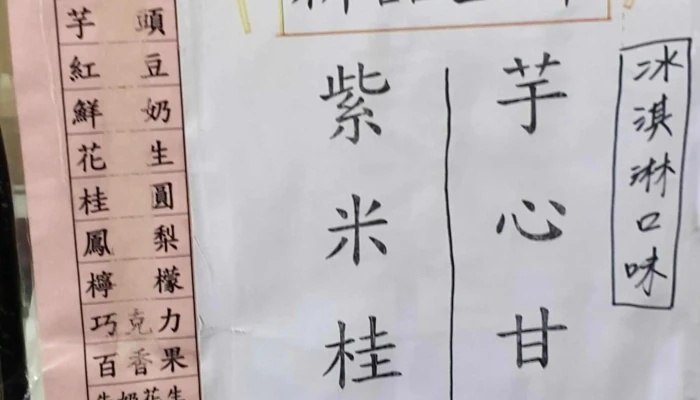 冰淇淋口味
芋心甘
紫米桂
芋頭
紅豆
鮮奶
花生
桂圓
鳳梨
檸檬
巧克力
百香果